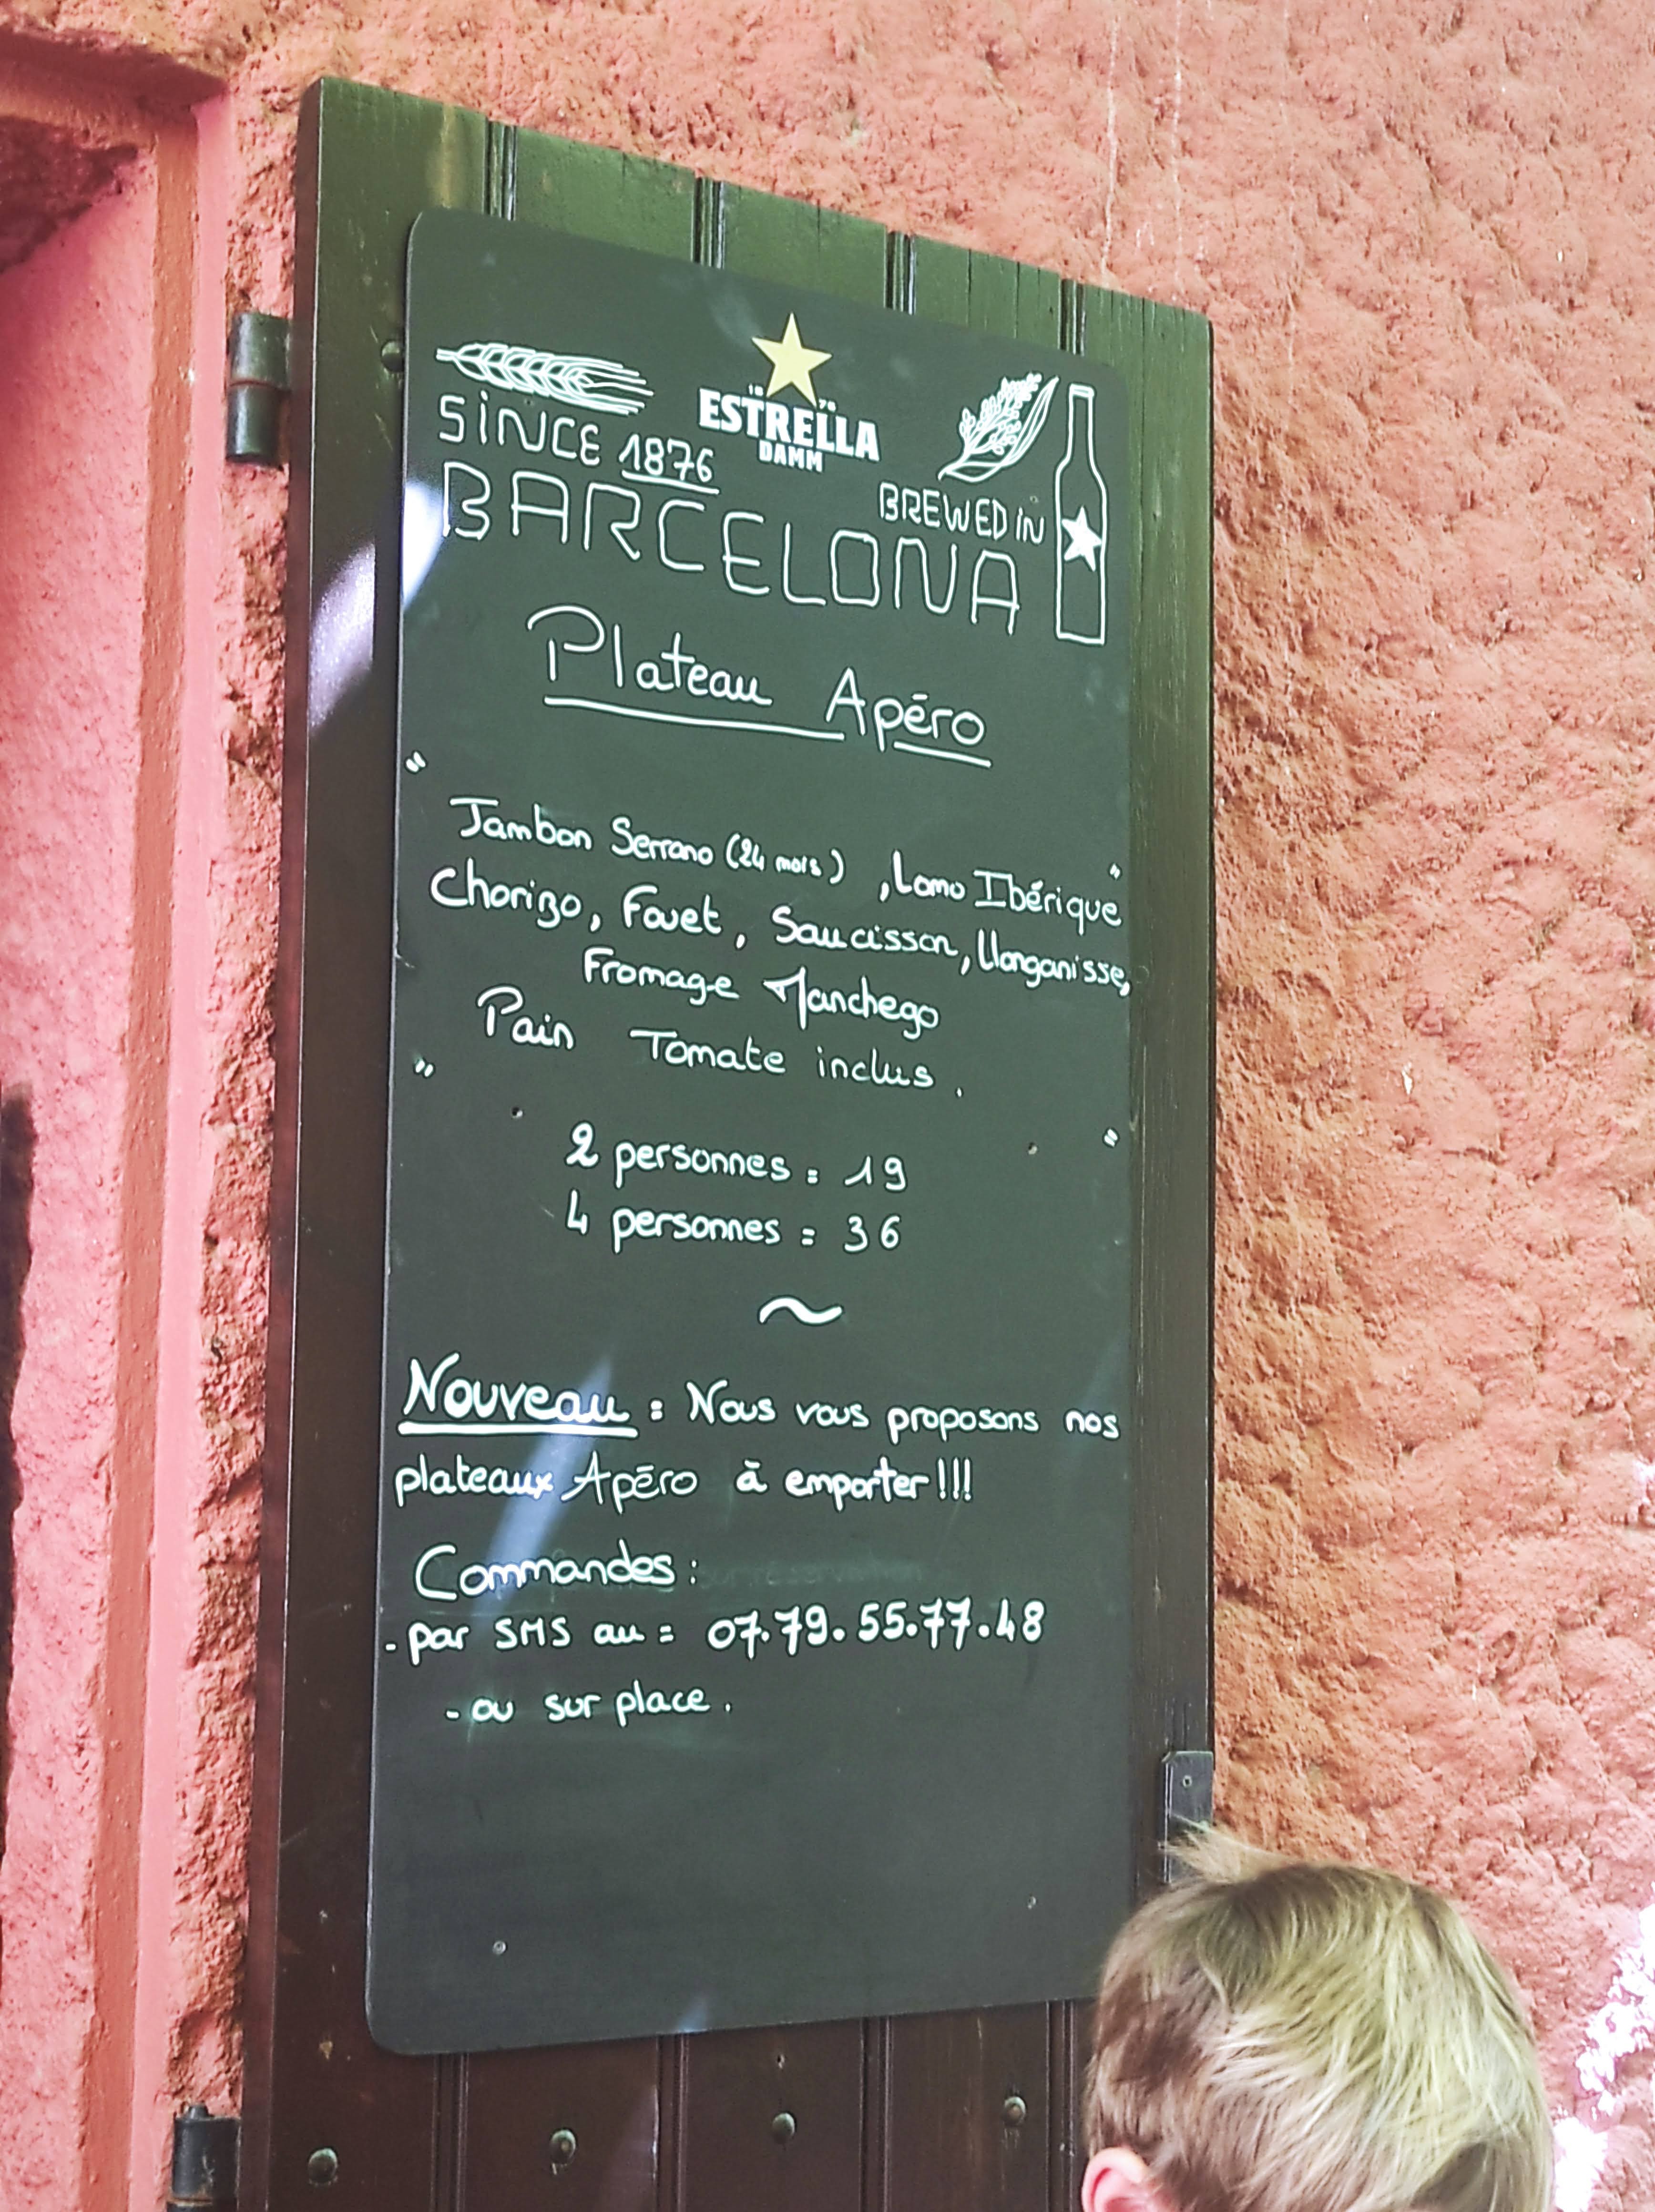 18 76
ESTRELLA
DAMM
SINCE 1876
BREWED IN
BARCELONA
Plateau Apéro
"
Jambon Serrano (24 mois), Lomo Ibérique"
Chorizo, Fouet, Saucisson, Llonganisse,
Fromage Manchego
Pain Tomate inclus.
" "
2 personnes = 19
4 personnes = 36
~
Nouveau : Nous vous proposons nos
plateaux Apéro à emporter!!!
Commandes :
- par SMS au = 07.79.55.77.48
- ou sur place.